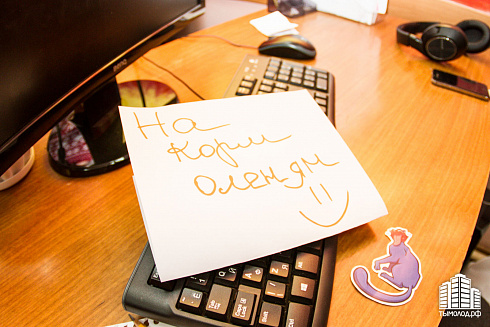 На
Корм
Оленям
=)
ТЫМОЛОД.РФ